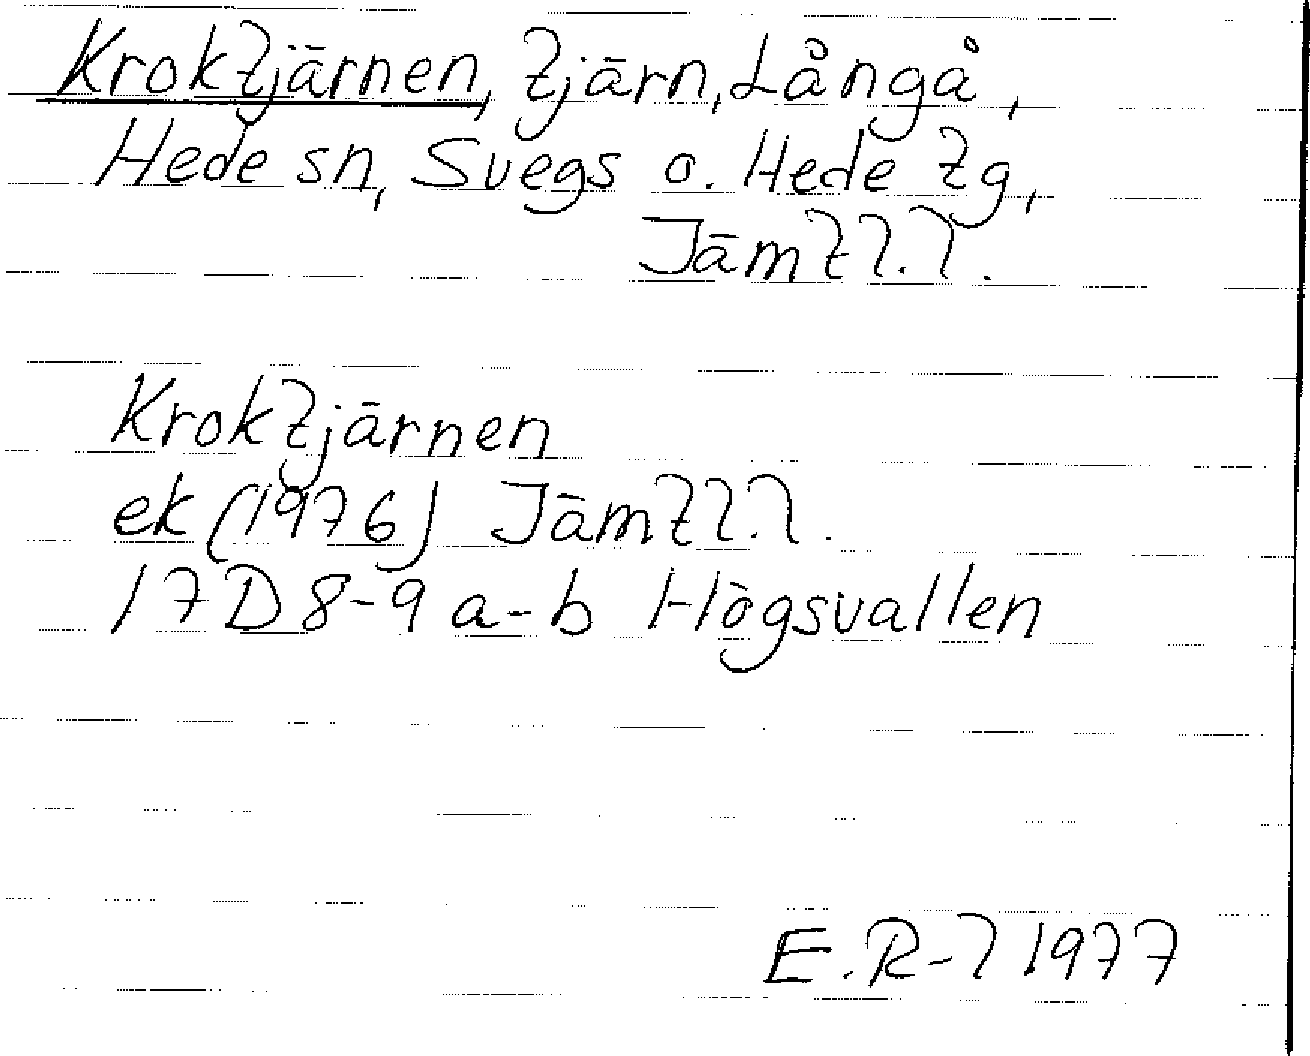 Kroktjärnen, tjärn, Långå,
Hede sn, Svegs o. Hede tg,
Jämtl.l.
Kroktjärnen
ek (1976) Jämtl.l.
17D 8-9 a-b Högsvallen
E.R-l 1977